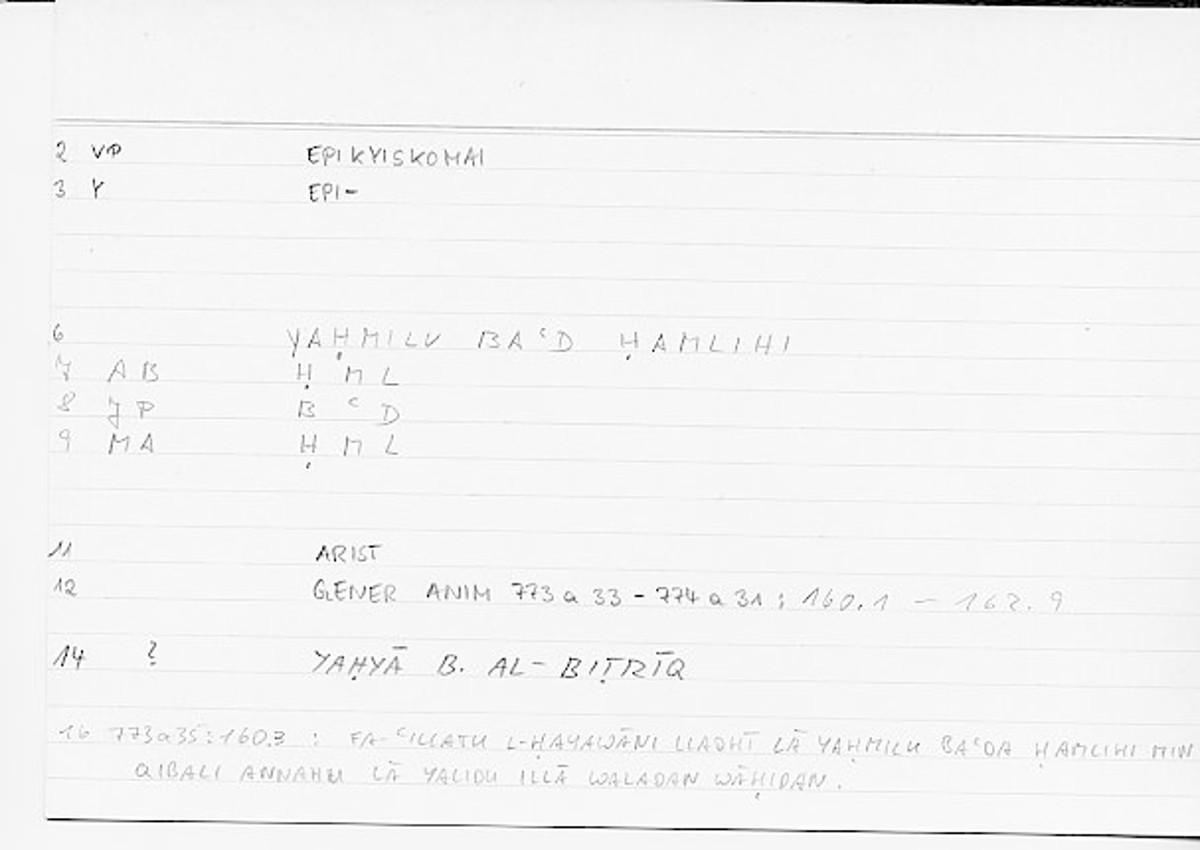 2 VP EPIKYISKOMAI
3 Y EPI-
6 YAḤMILU BAʿD ḤAMLIHI
7 AB Ḥ M L
8 JP B ʿ D
9 MA Ḥ M L
11 ARIST
12 GENER ANIM 773 a 33 - 774 a 31 ; 160.1 - 162.9
14 ? YAḤYĀ B. AL-BIṬRĪQ
16 773a35:160.3 : FA-ʿILLATU L-ḤAYAWĀNI LLADHĪ LĀ YAḤMILU BAʿDA ḤAMLIHI MIN
QIBALI ANNAHU LĀ YALIDU ILLĀ WALADAN WĀḤIDAN.